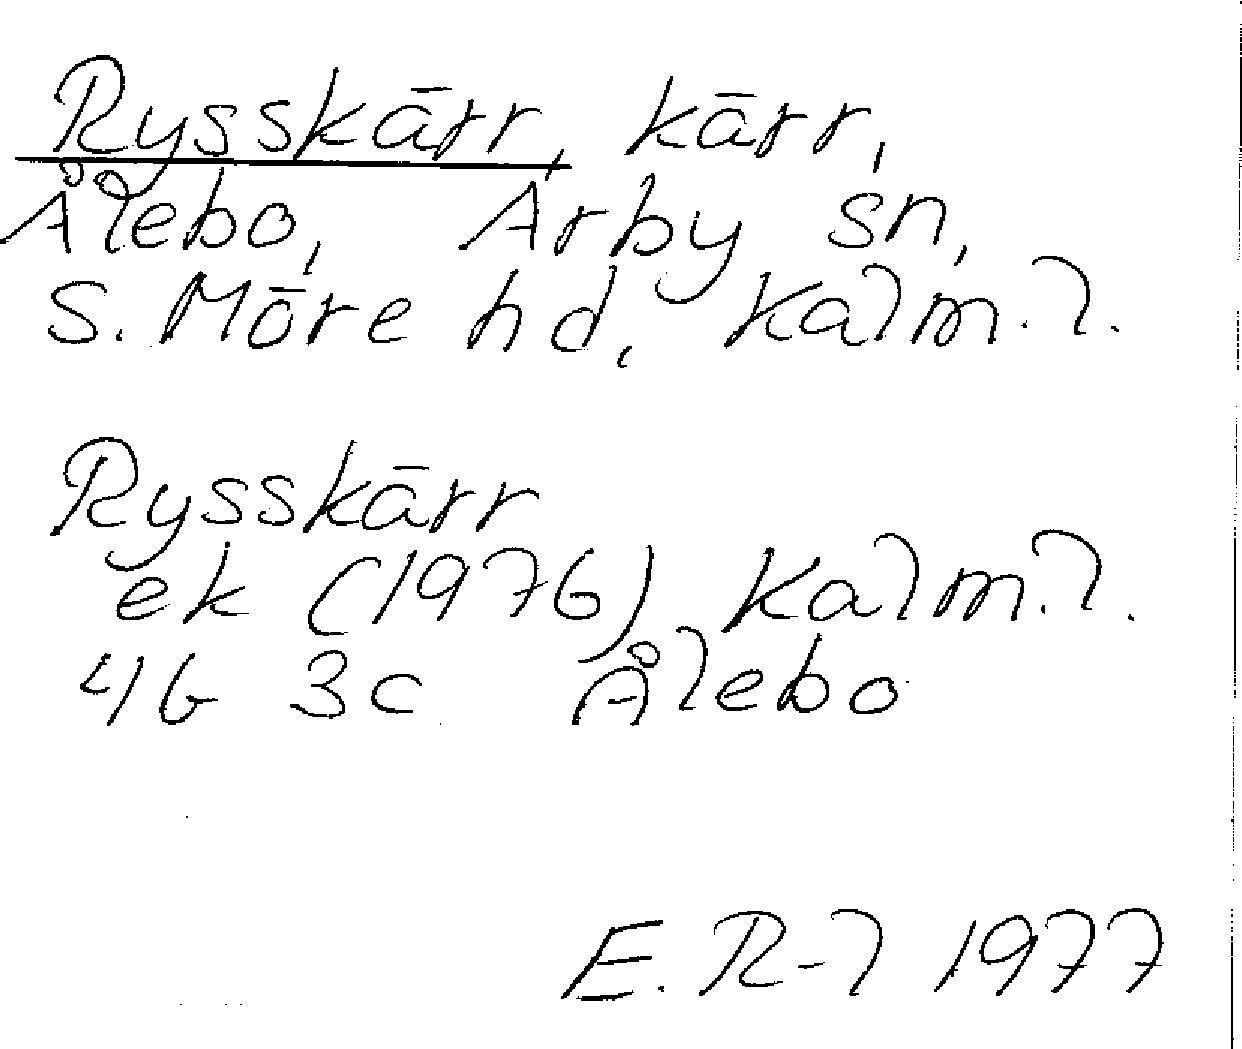 Rysskärr, kärr,
Ålebo, Arby sn,
S. Möre hd, Kalm. l.
Rysskärr
ek (1976) Kalm. l.
4G 3c Ålebo
E. R-l 1977